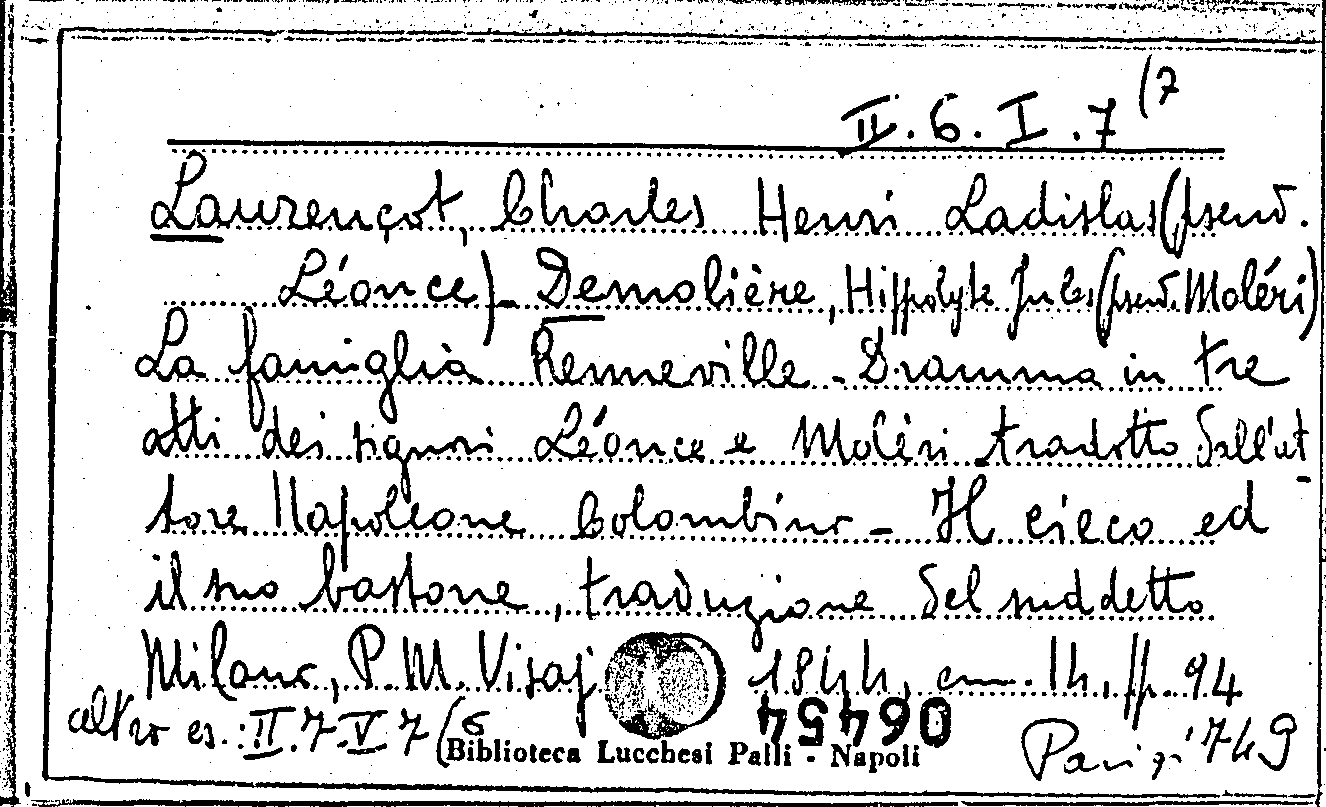 II.6.I.7(7
Laurençot, Charles Henri Ladislas (pseud.
Léonce) - Demolière, Hippolyte Jules (pseud. Moléri)
La famiglia Renneville - Dramma in tre
atti dei signori Léonce e Moléri tradotto dall'at
tore Napoleone Colombino - Il cieco ed
il suo bastone, traduzione del suddetto
Milano, P. M. Visaj 1844, cm. 14, pp. 94
altro es.: II.7.V.7(6
06454
Biblioteca Lucchesi Palli - Napoli
Parigi 749